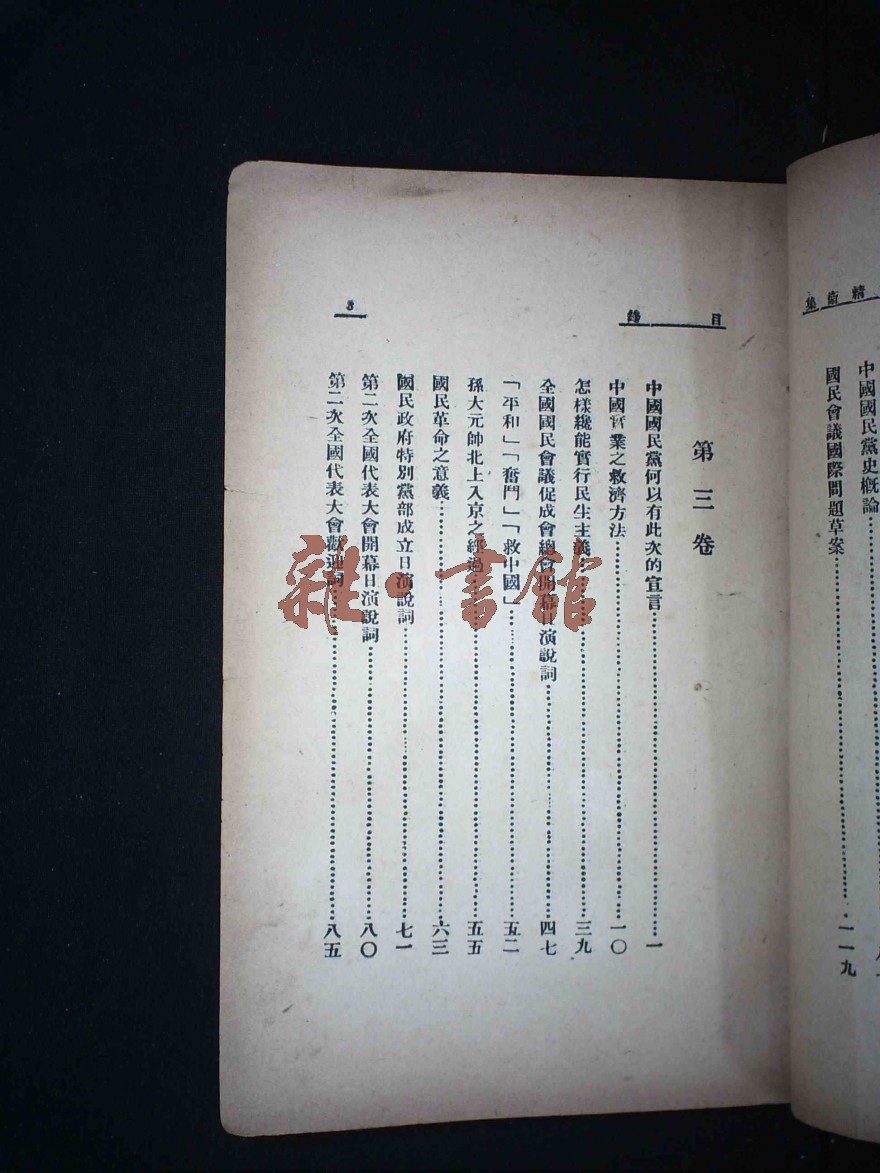 集 衛 精
中國國民黨史概論
國民會議國際問題草案……一一九
目 錄
3
第三卷
中國國民黨何以有此次的宣言……一
中國實業之救濟方法……一〇
怎樣纔能實行民生主義……三九
全國國民會議促成會總會開幕日演說詞……四七
「平和」「奮鬥」「救中國」……五二
孫大元帥北上入京之經過……五五
國民革命之意義……六三
國民政府特別黨部成立日演說詞……七一
第二次全國代表大會開幕日演說詞……八〇
第二次全國代表大會歡迎詞……八五
雜·書館